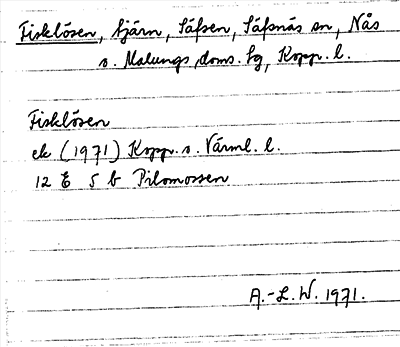 Fisklösen, tjärn, Säfsen, Säfsnäs sn, Nås
o. Malungs doms. sg, Kopp. l.
Fisklösen
ek (1971) Kopp. o. Värml. l.
12 E 5 b Pilomossen
A.-L. W. 1971.